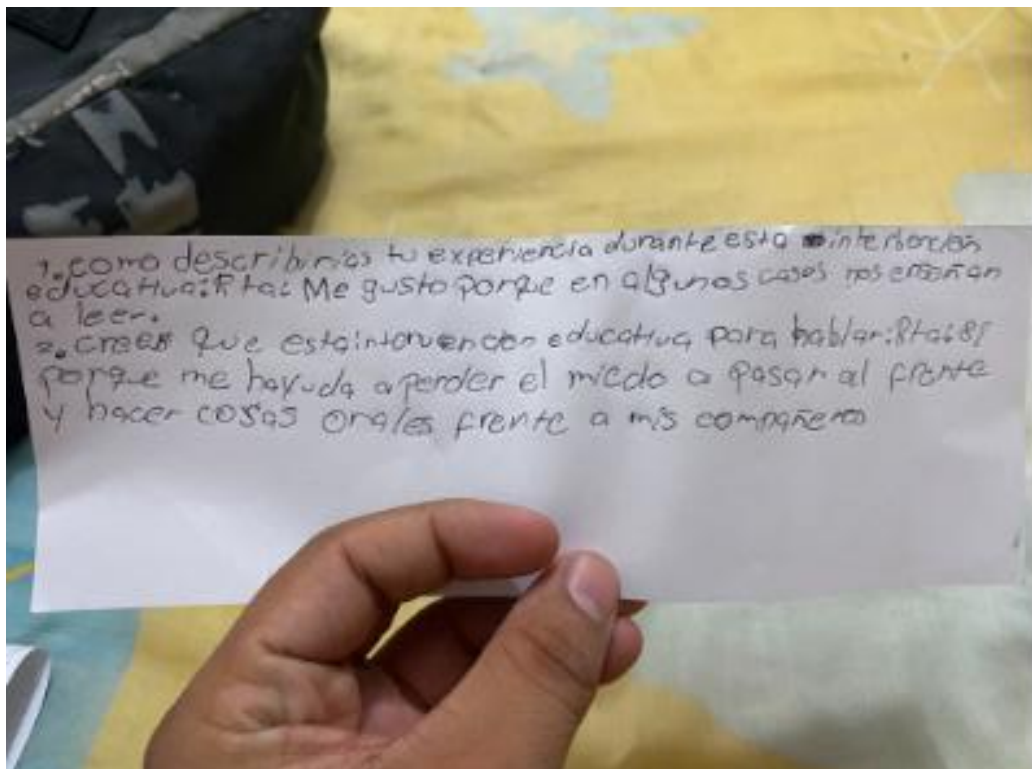 1. como describirias tu experiencia durante esta interbencion
educativa: Rta: Me gusto porque en algunos casos nos enseñan
a leer.
2. crees que esta intervencion educativa para hablar: Rta: si
porque me hayuda a perder el miedo a pasar al frente
y hacer cosas orales frente a mis compañeros